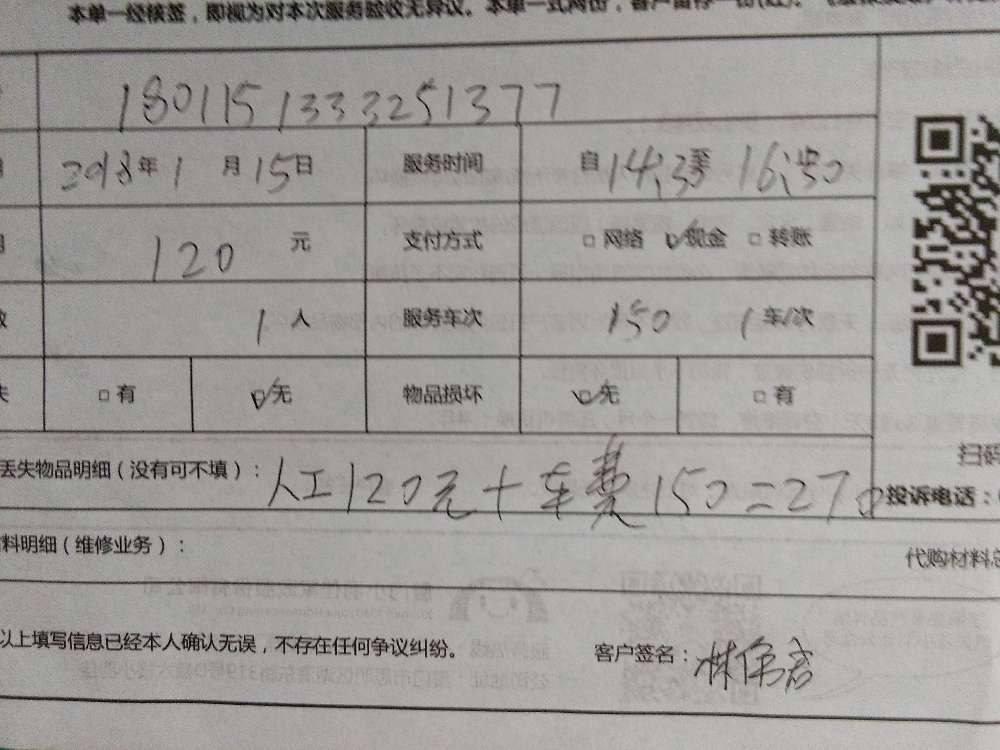 本单一经核签，即视为对本次服务验收无异议。本单一式两份，客户留存一份
180115133325​1377
2018年1月15日 服务时间 自14:30至16:50
120元 支付方式 □网络 ☑现金 □转账
1人 服务车次 150 1车/次
□有 ☑无 物品损坏 ☑无 □有
丢失物品明细（没有可不填）：人工120元+车费150=270
扫码
投诉电话：
料明细（维修业务）：
代购材料总
以上填写信息已经本人确认无误，不存在任何争议纠纷。 客户签名：林伟